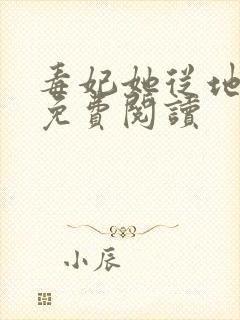 毒妃她從地
免費閱讀
小辰